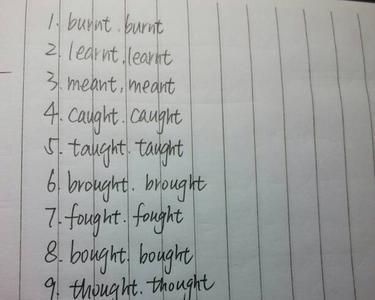 1. burnt. burnt
2. learnt. learnt
3. meant. meant
4. caught. caught
5. taught. taught
6. brought. brought
7. fought. fought
8. bought. bought
9. thought. thought